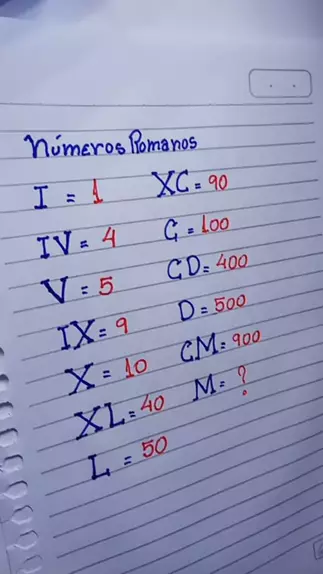 Números Romanos
I = 1
IV = 4
V = 5
IX = 9
X = 10
XL = 40
L = 50
XC = 90
C = 100
CD = 400
D = 500
CM = 900
M = ?